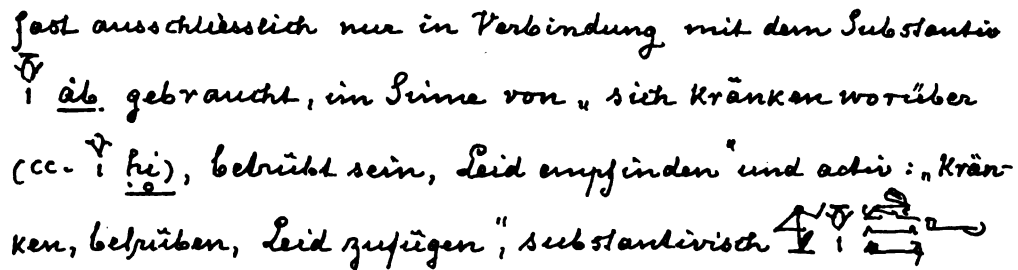 fast ausschliesslich nur in Verbindung mit dem Substantiv
𓄣𓏤 áb gebraucht, im Sinne von „sich Kränken worüber
(cc. 𓁷𓏤 ḥi), betrübt sein, Leid empfinden“ und activ: „Krän-
ken, betrüben, Leid zufügen“, substantivisch